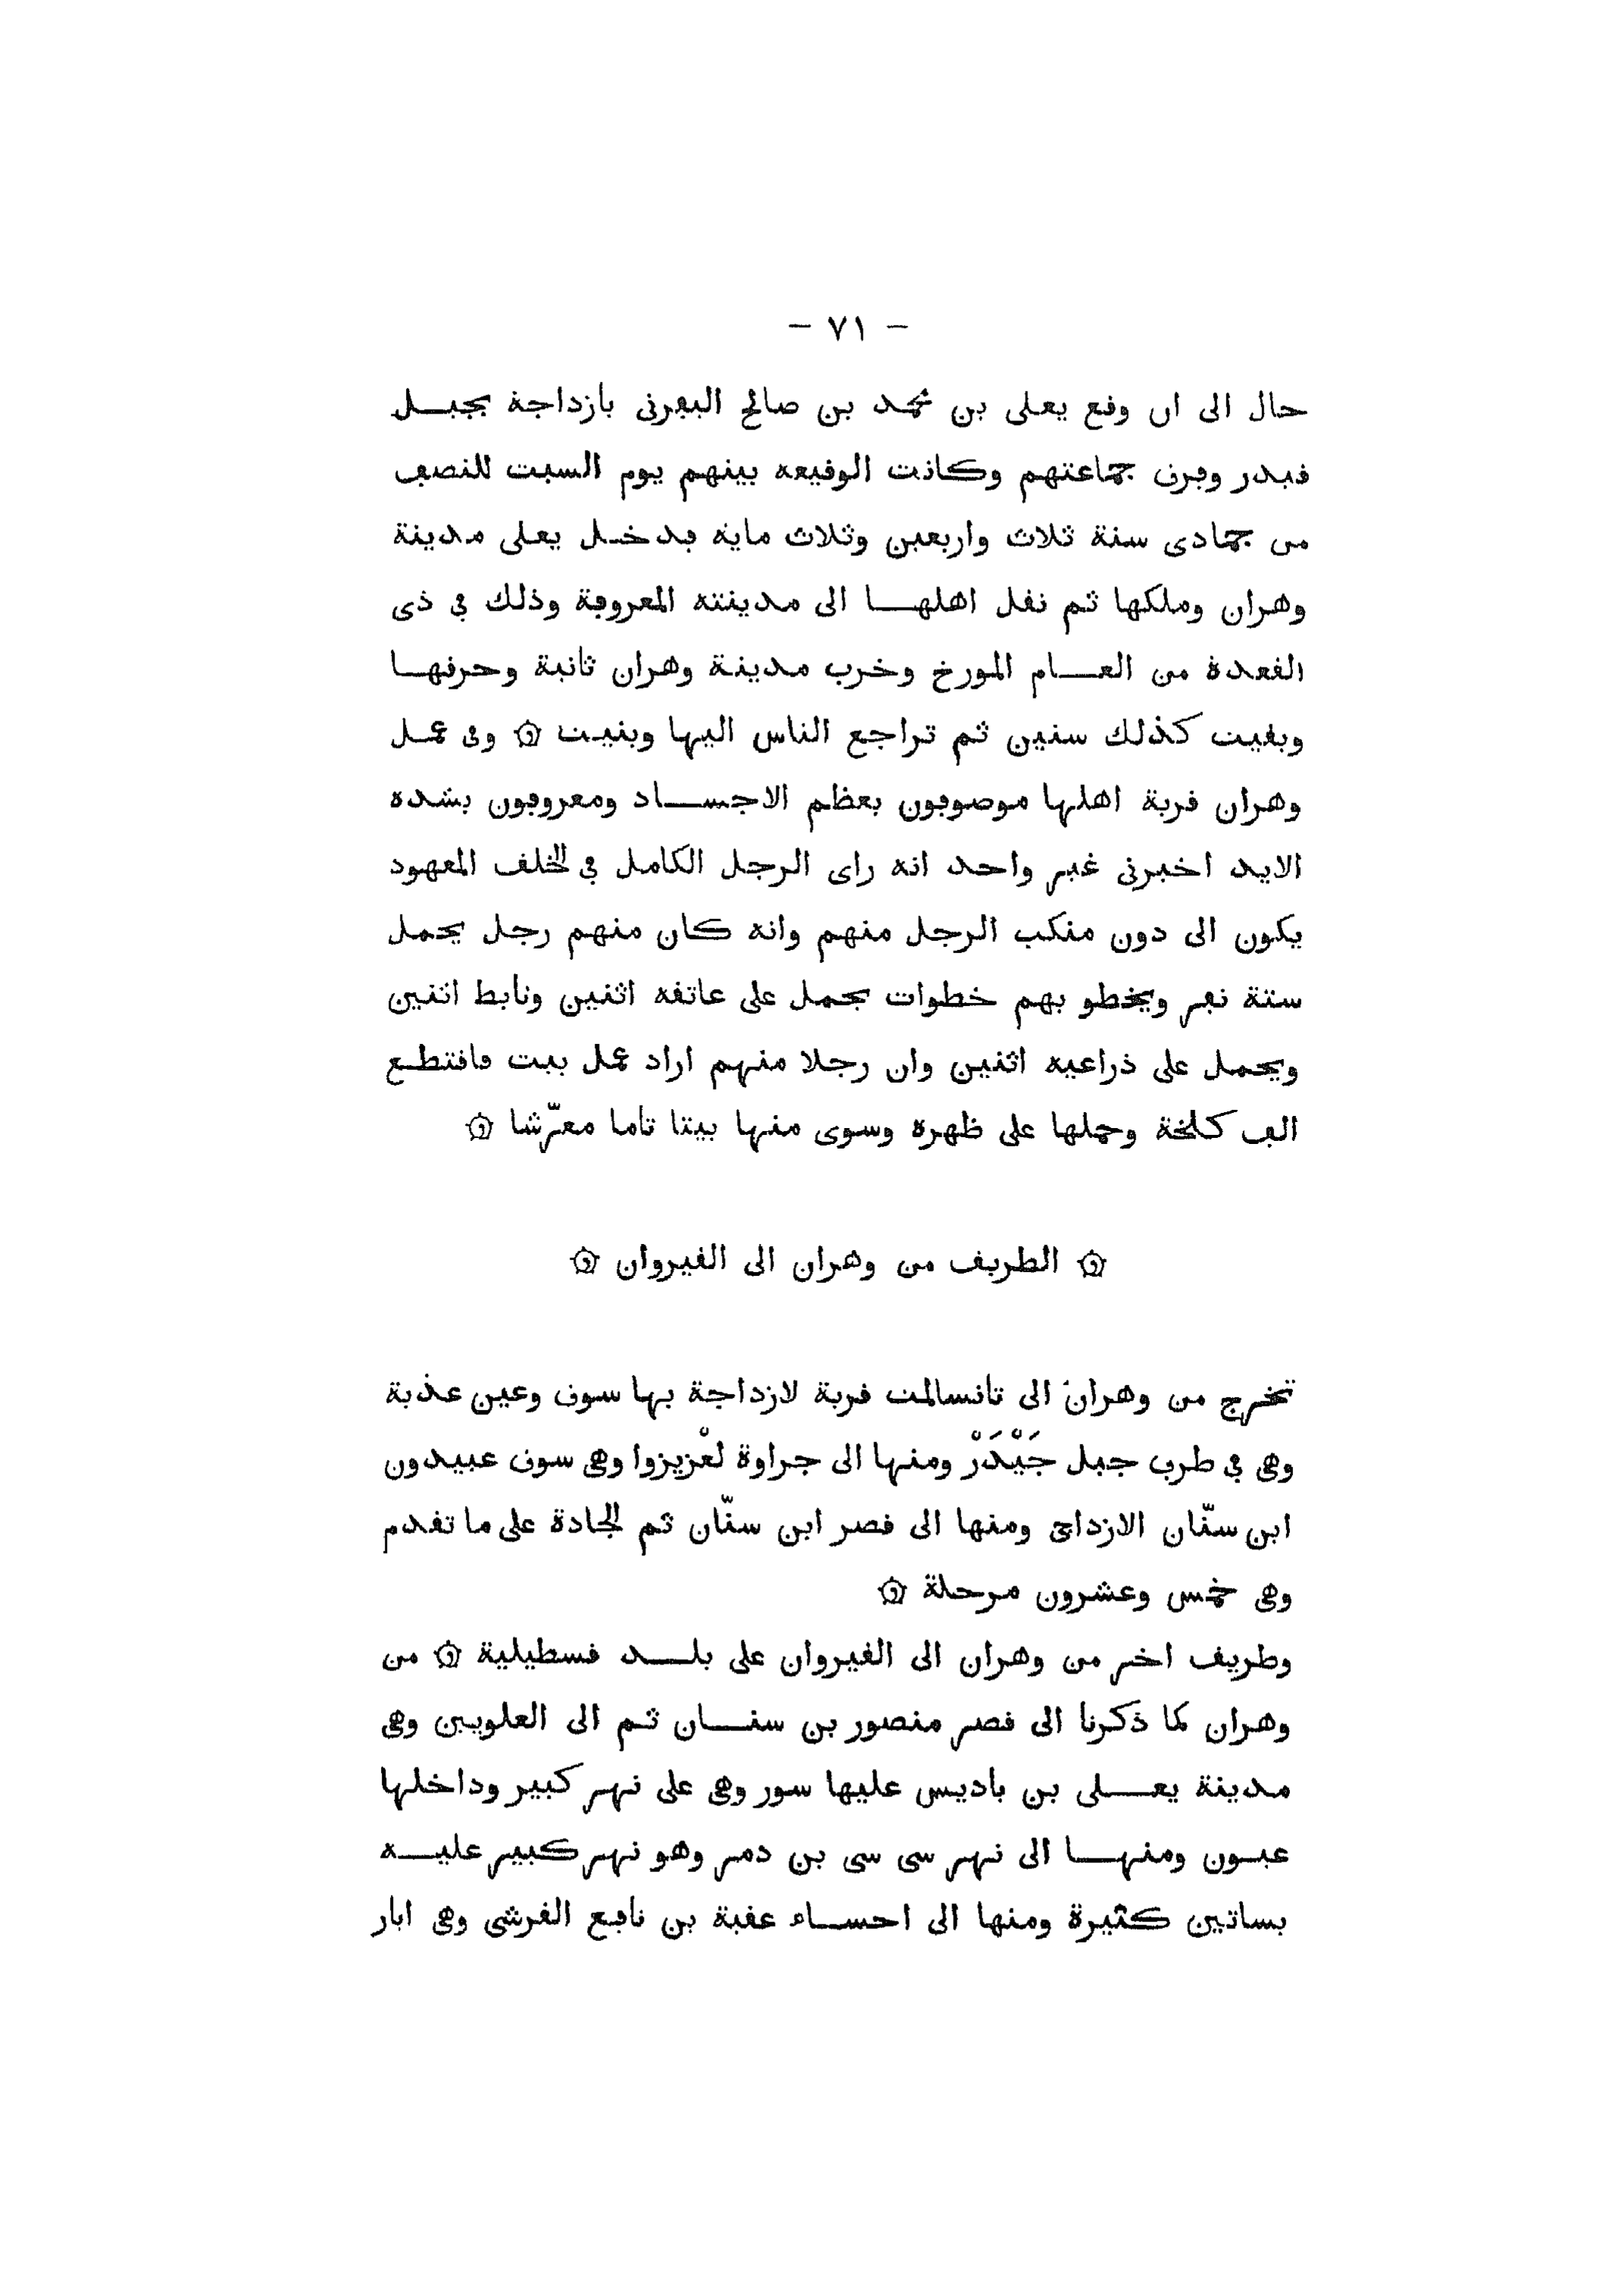 - ٧١ -
حال الى ان وقع يعلى بن محمد بن صالح اليفرنى بازداجة بجبل
قيدر وفرق جماعتهم وكانت الوقيعه بينهم يوم السبت للنصف
من جمادى سنة ثلاث واربعين وثلاث مايه فدخل يعلى مدينة
وهران وملكها ثم نقل اهلها الى مدينته المعروفة وذلك فى ذى
القعدة من العام المورخ وخرب مدينة وهران ثانية وحرقها
وبقيت كذلك سنين ثم تراجع الناس اليها وبنيت ۞ وفى عمل
وهران قرية اهلها موصوفون بعظم الاجساد ومعروفون بشده
الايد اخبرنى غير واحد انه راى الرجل الكامل فى الخلق المعهود
يكون الى دون منكب الرجل منهم وانه كان منهم رجل يحمل
ستة نفر ويخطو بهم خطوات يحمل على عاتقه اثنين وتأبط اثنين
ويحمل على ذراعيه اثنين وان رجلا منهم اراد عمل بيت فاقتطع
الف كلخة وحملها على ظهره وسوى منها بيتا تاما معرّشا ۞
۞ الطريق من وهران الى القيروان ۞
تخرج من وهران الى تانسالمت قرية لازداجة بها سوق وعين عذبة
وهى فى طرف جبل جَيْدَرْ ومنها الى جراوة لعْزيزوا وهى سوق عبيدون
ابن سنّان الازداجى ومنها الى قصر ابن سنّان ثم الجادة على ما تقدم
وهى خمس وعشرون مرحلة ۞
وطريق اخر من وهران الى القيروان على بلد قسطيلية ۞ من
وهران كما ذكرنا الى قصر منصور بن سنان ثم الى العلويين وهى
مدينة يعلى بن باديس عليها سور وهى على نهر كبير وداخلها
عيون ومنها الى نهر سى سى بن دمر وهو نهر كبير عليه
بساتين كثيرة ومنها الى احساء عقبة بن نافع القرشى وهى ابار